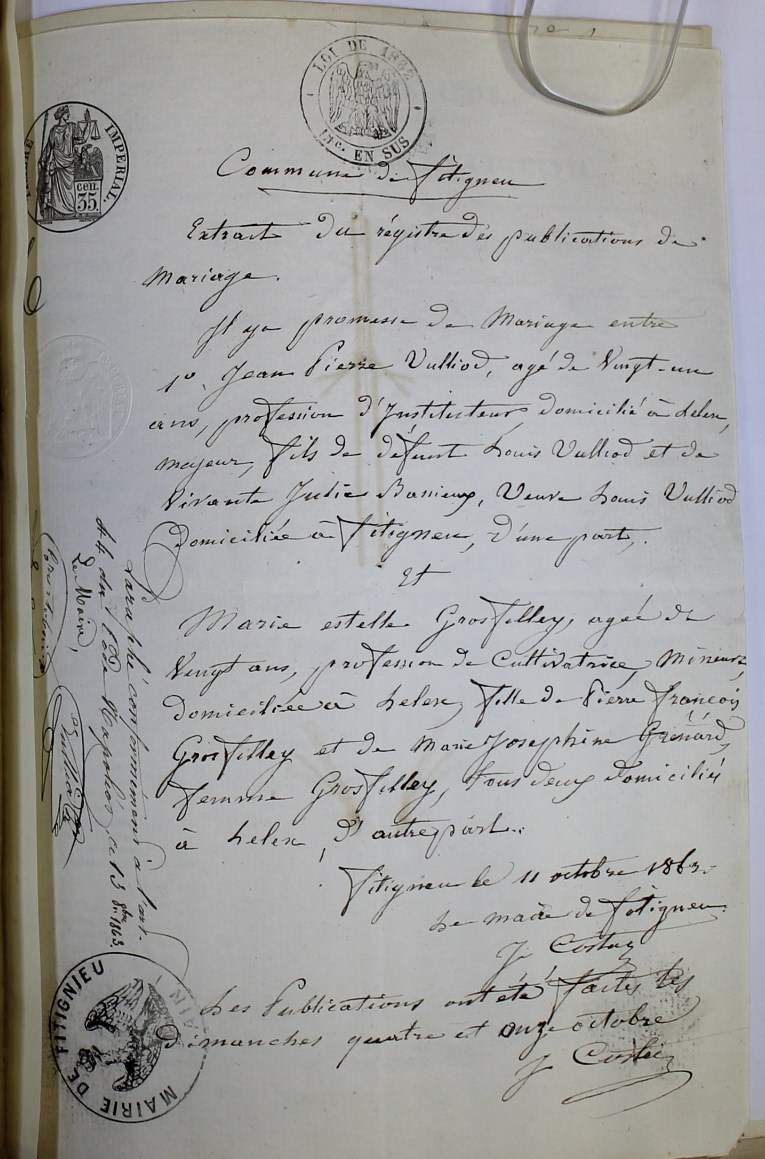 LOI DE 1862
Dic. EN SUS
IMPERIAL
35 cen.
Commune de fitigneu
Extrait du régistre des publications de
Mariage.
Il y a promesse de Mariage entre
1º. Jean Pierre Vulliod, agé de Vingt-un
ans, profession d'Instituteur, domicilié à Lelex,
majeur, fils de défunt Louis Vulliod et de
Vivante Julie Veuve Louis Vulliod
domiciliée à fitigneu, d'une part,
Et
Marie estelle Grosfilley, agée de
Vingt ans, profession de Cultivatrice, Mineure,
domiciliée à Lelex, fille de Pierre françois
Grosfilley et de Marie Josephine Grénard,
femme Grosfilley, tous deux domiciliés
à Lelex, d'autre part.
fitigneu le 11 octobre 1863.
Le maire de fitigneu
J
Les Publications ont été faites les
dimanches quatre et onze octobre
J
Paraphé conformément à l'art.
44 du Code Napoléon, ce 13 8bre 1863.
Le Maire,
MAIRIE DE FITIGNIEU
AIN